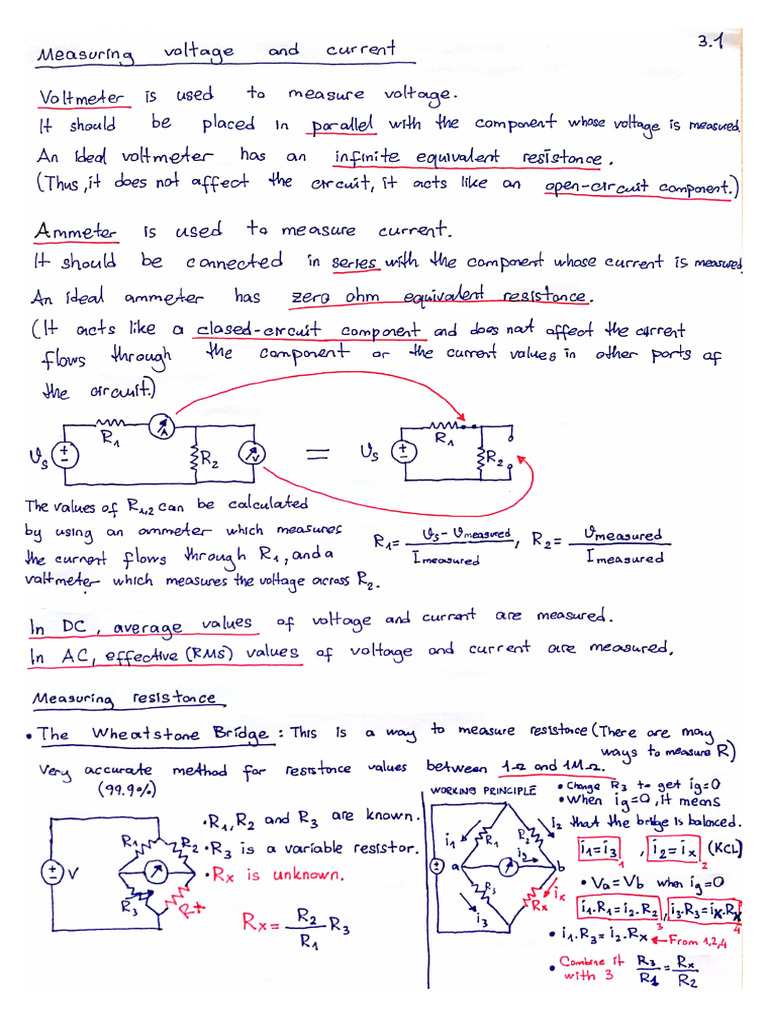 3.1
Measuring voltage and current
Voltmeter is used to measure voltage.
It should be placed in parallel with the component whose voltage is measured.
An ideal voltmeter has an infinite equivalent resistance.
(Thus, it does not affect the circuit, it acts like an open-circuit component.)
Ammeter is used to measure current.
It should be connected in series with the component whose current is measured.
An ideal ammeter has zero ohm equivalent resistance.
(It acts like a closed-circuit component and does not affect the current
flows through the component or the current values in other ports of
the circuit.)
Vs ± R1 A R2 V = Vs ± R1 R2
The values of R1,2 can be calculated
by using an ammeter which measures
the current flows through R1, and a
voltmeter which measures the voltage across R2.
R1 = (Vs - Vmeasured) / Imeasured , R2 = Vmeasured / Imeasured
In DC, average values of voltage and current are measured.
In AC, effective (RMS) values of voltage and current are measured.
Measuring resistance
• The Wheatstone Bridge : This is a way to measure resistance (There are may
ways to measure R)
Very accurate method for resistance values between 1Ω and 1MΩ.
(99.9%)
± V R1 R2 R3 Rx
• R1, R2 and R3 are known.
• R3 is a variable resistor.
• Rx is unknown.
Rx = R2 / R1 R3
WORKING PRINCIPLE
• Change R3 to get ig=0
• When ig=0, it means
that the bridge is balanced.
± i1 R1 R2 i2 a b R3 Rx ix i3
i1=i3 1 , i2=ix 2 (KCL)
• Va=Vb when ig=0
i1.R1=i2.R2 3 , i3.R3=ix.Rx 4
• i1.R3=i2.Rx ← From 1,2,4
• Combine it
with 3 R3/R1 = Rx/R2